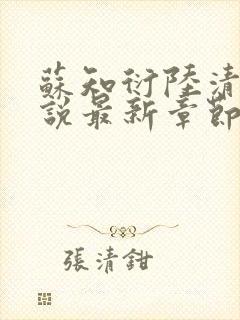 蘇知衍陸清
說最新章節
張清鉗